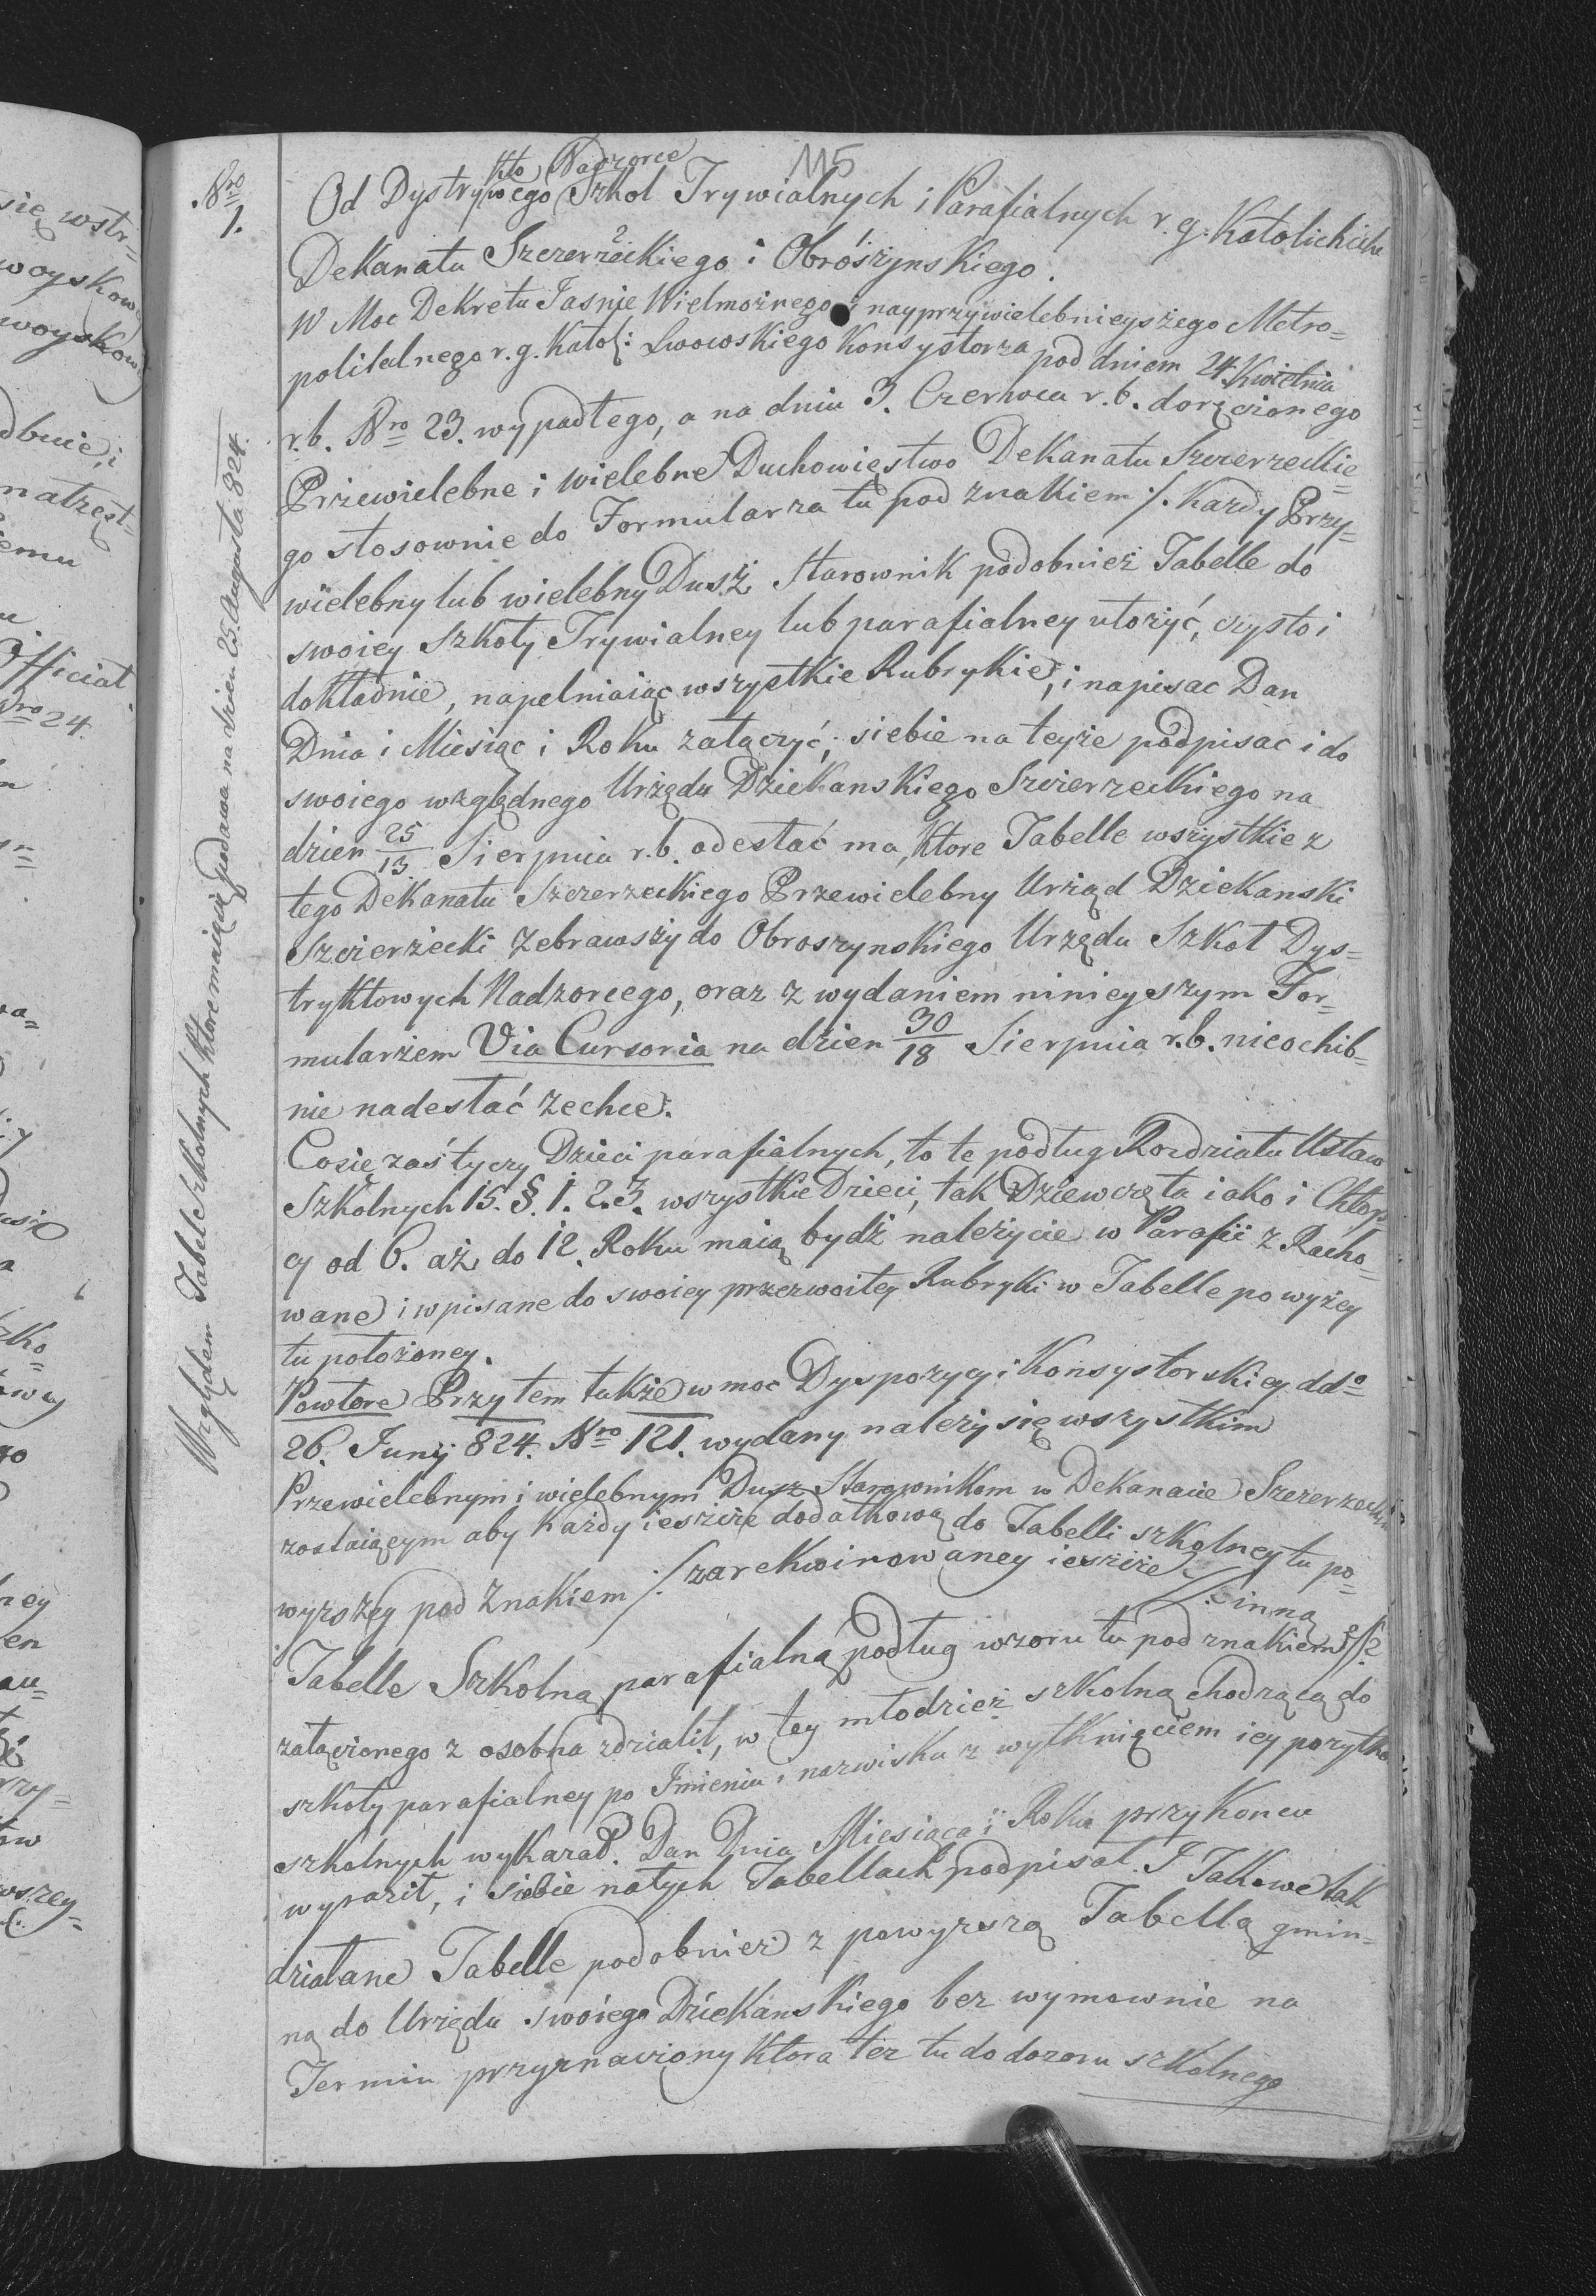 115
Nro 1.
Od Dystryktowego Nadzorcę Szkol Trywialnych i Parafialnych r. g. Katolickich
Dekanatu Szczerzeckiego i Obrószynskiego.
W Moc Dekretu Jasnie Wielmożnego i nayprzywielebnieyszego Metro=
politalnego r. g. Katol: Lwowskiego Konsystorza pod dniem 24. Kwietnia
r. b. Nro 23. wypadłego, a na dniu 3. Czerwca r. b. doręczonego
Przewielebne i wielebne Duchowięstwo Dekanatu Szczerzeckie=
go stosownie do Formularza tu pod znakiem ⁒ każdy Przy=
wielebny lub wielebny Dusz Starownik podobnież Tabelle do
swoiey Szkoły Trywialney lub parafialney ułożyć, czysto i
dokładnie, napełniaiąc wszystkie Rubrykie, i napisac Dan
Dnia i Miesiąc i Roku załączyć, siebie na teyże podpisac i do
swoiego względnego Urzędu Dziekanskiego Szczerzeckiego na
dzien 25/13 Sierpnia r. b. odesłać ma, ktore Tabelle wszystkie z
tego Dekanatu Szczerzeckiego Przewielebny Urząd Dziekanski
Szczerzecki zebrawszy do Obroszynskiego Urzędu Szkoł Dys=
tryktowych Nadzorcego, oraz z wydaniem ninieyszym For=
mularzem Via Cursoria na dzien 30/18 Sierpnia r. b. nieochib=
nie nadesłać zechce.
Co się zaś tyczy Dzieci parafialnych, to te podług Rozdziału Ustaw
Szkolnych 15. §. 1. 2. 3. wszystkie Dzieci, tak Dziewczęta iako i Chłop=
cy od 6. aż do 12. Roku maią bydź należycie w Parafii z Racho=
wane i wpisane do swoiey przezwoitey Rubryki w Tabelle powyżey
tu położoney.
Powtore Przytem także w moc Dyspozycyi Konsystorskiey ddo
26. Junij 824. Nro 121. wydany należy się wszystkim
Przewielebnym i wielebnym Dusz Starownikom w Dekanacie Szczerzeckim
zostaiącym aby każdy ieszcze dodatkową do Tabelli szkolney tu po=
wyrszey pod znakiem ⁒ zarekwirowaney ieszcze inną
Tabelle Szkolną parafialną podług wzoru tu pod znakiem 2/. 2.
załączonego z osobna zdziałił, w tey młodzież szkolną chodzącą do
szkoły parafialney po Imieniu i nazwisku z wytknięciem iey pożytko
szkolnych wykazał. Dan Dnia Miesiąca i Roku przykoncu
wyraził, i siebie natych Tabellach podpisał. I Takowe tak
działane Tabelle podobnież z powyrszą Tabellą gmin=
ną do Urzędu swoiego Dziekanskiego bez wymownie na
Termin przyznaczony ktora też tu do dozoru szkolnego
Względem Tabele Szkolnych ktore maią się podawa na dzien 25. Augusta 824.